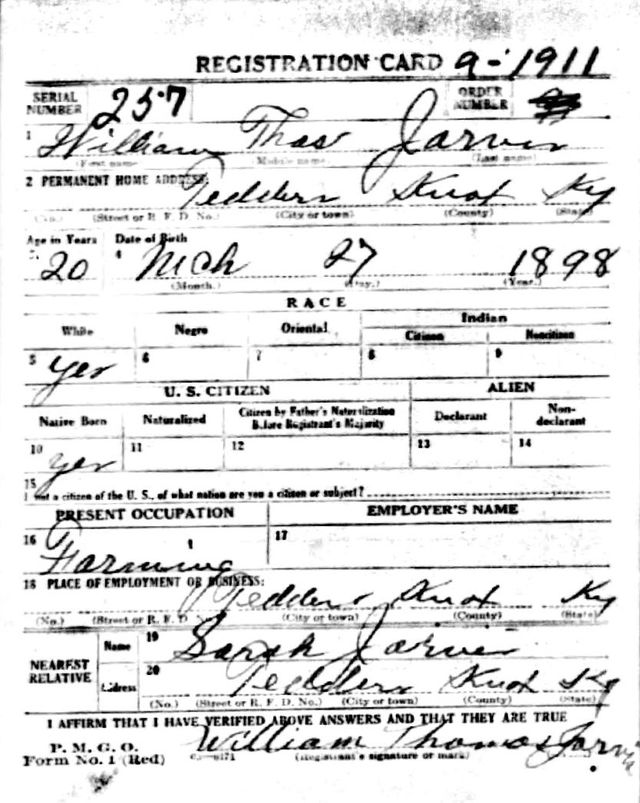 REGISTRATION CARD 9-1911
SERIAL NUMBER 257 ORDER NUMBER
1 William Thos Jarvis
(First name) (Middle name) (Last name)
2 PERMANENT HOME ADDRESS: Tedders Knox Ky
(No.) (Street or R. F. D. No.) (City or town) (County) (State)
Age in Years Date of Birth
20 4 Mch 27 1898
(Month.) (Day.) (Year.)
RACE
White Negro Oriental Indian
Citizen Noncitizen
5 yes 6 7 8 9
U. S. CITIZEN ALIEN
Native Born Naturalized Citizen by Father's Naturalization Before Registrant's Majority Declarant Non-declarant
10 yes 11 12 13 14
15
If not a citizen of the U. S., of what nation are you a citizen or subject?
PRESENT OCCUPATION EMPLOYER'S NAME
16 Farming 17
18 PLACE OF EMPLOYMENT OR BUSINESS:
Tedders Knox Ky
(No.) (Street or R. F. D. No.) (City or town) (County) (State)
NEAREST RELATIVE Name 19 Sarah Jarvis
Address 20 Tedders Knox Ky
(No.) (Street or R. F. D. No.) (City or town) (County) (State)
I AFFIRM THAT I HAVE VERIFIED ABOVE ANSWERS AND THAT THEY ARE TRUE
P. M. G. O.
Form No. 1 (Red) William Thomas Jarvis
(Registrant's signature or mark)